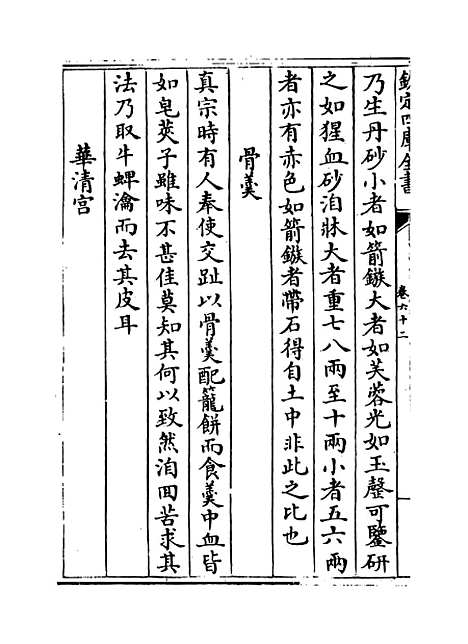 欽定四庫全書
卷六十二
乃生丹砂小者如箭鏃大者如芙蓉光如玉磬可鑒研
之如猩血砂洎牀大者重七八兩至十兩小者五六兩
者亦有赤色如箭鏃者帶石得自土中非此之比也
骨羹
真宗時有人奉使交趾以骨羹配籠餅而食羹中血皆
如皂莢子雖味不甚佳莫知其何以致然洎回苦求其
法乃取牛蜱瀹而去其皮耳
華清宮